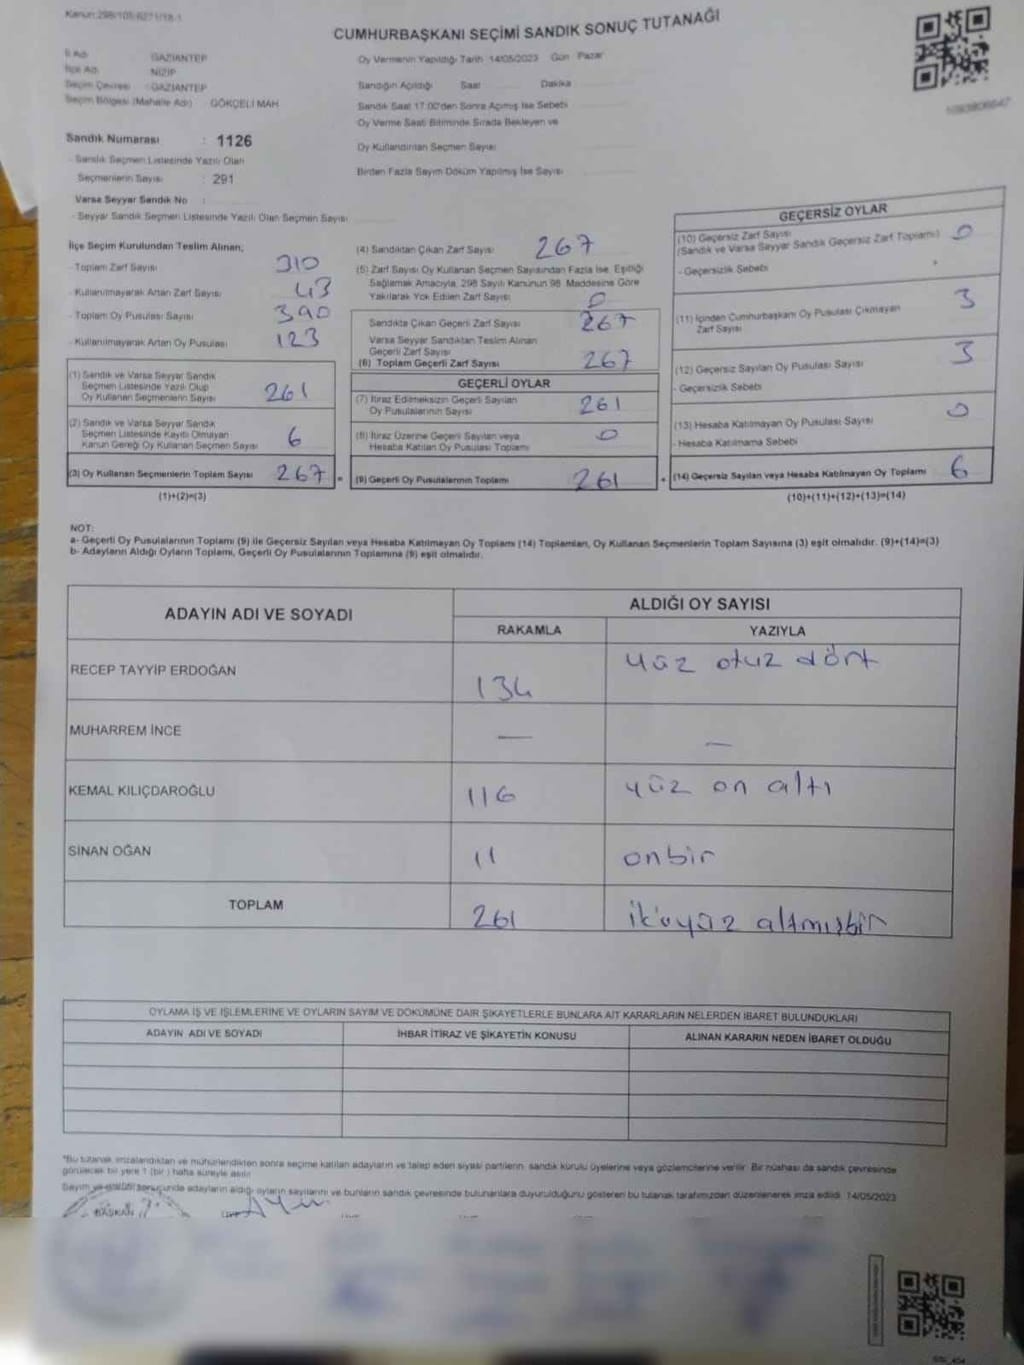 Kanun:298/105-6271/18-1
CUMHURBAŞKANI SEÇİMİ SANDIK SONUÇ TUTANAĞI
İl Adı : GAZİANTEP
İlçe Adı : NİZİP
Seçim Çevresi : GAZİANTEP
Seçim Bölgesi (Mahalle Adı) : GÖKÇELİ MAH
Sandık Numarası : 1126
- Sandık Seçmen Listesinde Yazılı Olan
Seçmenlerin Sayısı : 291
Varsa Seyyar Sandık No :
- Seyyar Sandık Seçmen Listesinde Yazılı Olan Seçmen Sayısı
Oy Vermenin Yapıldığı Tarih 14/05/2023 Gün Pazar
Sandığın Açıldığı Saat Dakika
Sandık Saat 17.00'den Sonra Açımış İse Sebebi
Oy Verme Saati Bitiminde Sırada Bekleyen ve
Oy Kullandırılan Seçmen Sayısı
Birden Fazla Sayım Döküm Yapılmış İse Sayısı
İlçe Seçim Kurulundan Teslim Alınan;
- Toplam Zarf Sayısı 310
- Kullanılmayarak Artan Zarf Sayısı 43
- Toplam Oy Pusulası Sayısı 390
- Kullanılmayarak Artan Oy Pusulası 123
(1) Sandık ve Varsa Seyyar Sandık
Seçmen Listesinde Yazılı Olup
Oy Kullanan Seçmenlerin Sayısı 261
(2) Sandık ve Varsa Seyyar Sandık
Seçmen Listesinde Kayıtlı Olmayan
Kanun Gereği Oy Kullanan Seçmen Sayısı 6
(3) Oy Kullanan Seçmenlerin Toplam Sayısı 267 =
(1)+(2)=(3)
(4) Sandıktan Çıkan Zarf Sayısı 267
(5) Zarf Sayısı Oy Kullanan Seçmen Sayısından Fazla İse, Eşitliği
Sağlamak Amacıyla, 298 Sayılı Kanunun 98. Maddesine Göre
Yakılarak Yok Edilen Zarf Sayısı 0
Sandıkta Çıkan Geçerli Zarf Sayısı 267
Varsa Seyyar Sandıktan Teslim Alınan
Geçerli Zarf Sayısı
(6) Toplam Geçerli Zarf Sayısı 267
GEÇERLİ OYLAR
(7) İtiraz Edilmeksizin Geçerli Sayılan
Oy Pusulalarının Sayısı 261
(8) İtiraz Üzerine Geçerli Sayılan veya
Hesaba Katılan Oy Pusulası Toplamı 0
(9) Geçerli Oy Pusulalarının Toplamı 261 +
GEÇERSİZ OYLAR
(10) Geçersiz Zarf Sayısı
(Sandık ve Varsa Seyyar Sandık Geçersiz Zarf Toplamı) 0
- Geçersizlik Sebebi
(11) İçinden Cumhurbaşkanı Oy Pusulası Çıkmayan
Zarf Sayısı 3
(12) Geçersiz Sayılan Oy Pusulası Sayısı 3
- Geçersizlik Sebebi
(13) Hesaba Katılmayan Oy Pusulası Sayısı 0
- Hesaba Katılmama Sebebi
(14) Geçersiz Sayılan veya Hesaba Katılmayan Oy Toplamı 6
(10)+(11)+(12)+(13)=(14)
NOT:
a- Geçerli Oy Pusulalarının Toplamı (9) ile Geçersiz Sayılan veya Hesaba Katılmayan Oy Toplamı (14) Toplamları, Oy Kullanan Seçmenlerin Toplam Sayısına (3) eşit olmalıdır. (9)+(14)=(3)
b- Adayların Aldığı Oyların Toplamı, Geçerli Oy Pusulalarının Toplamına (9) eşit olmalıdır.
ADAYIN ADI VE SOYADI
ALDIĞI OY SAYISI
RAKAMLA YAZIYLA
RECEP TAYYİP ERDOĞAN 134 yüz otuz dört
MUHARREM İNCE — —
KEMAL KILIÇDAROĞLU 116 yüz on altı
SİNAN OĞAN 11 onbir
TOPLAM 261 ikiyüz altmışbir
OYLAMA İŞ VE İŞLEMLERİNE VE OYLARIN SAYIM VE DÖKÜMÜNE DAİR ŞİKAYETLERLE BUNLARA AİT KARARLARIN NELERDEN İBARET BULUNDUKLARI
ADAYIN ADI VE SOYADI İHBAR İTİRAZ VE ŞİKAYETİN KONUSU ALINAN KARARIN NEDEN İBARET OLDUĞU
*Bu tutanak imzalandıktan ve mühürlendikten sonra seçime katılan adayların ve talep eden siyasi partilerin sandık kurulu üyelerine veya gözlemcilerine verilir. Bir nüshası da sandık çevresinde
görülecek bir yere 1 (bir ) hafta süreyle asılır
Sayım ve döküm sonucunda adayların aldığı oyların sayılarını ve bunların sandık çevresinde bulunanlara duyurulduğunu gösteren bu tutanak tarafımızdan düzenlenerek imza edildi. 14/05/2023
BAŞKAN